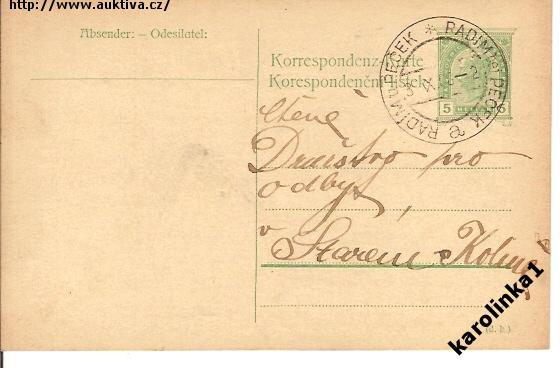 http://www.auktiva.cz/
Absender: – Odesílatel:
Korrespondenz-Karte
Korespondenční lístek
RADIM bei PEČEK * RADIM u PEČEK
5 5
ctěné
Družstvo pro
odbyt,
v Starem Kolíně
(d. h.)
karolinka1